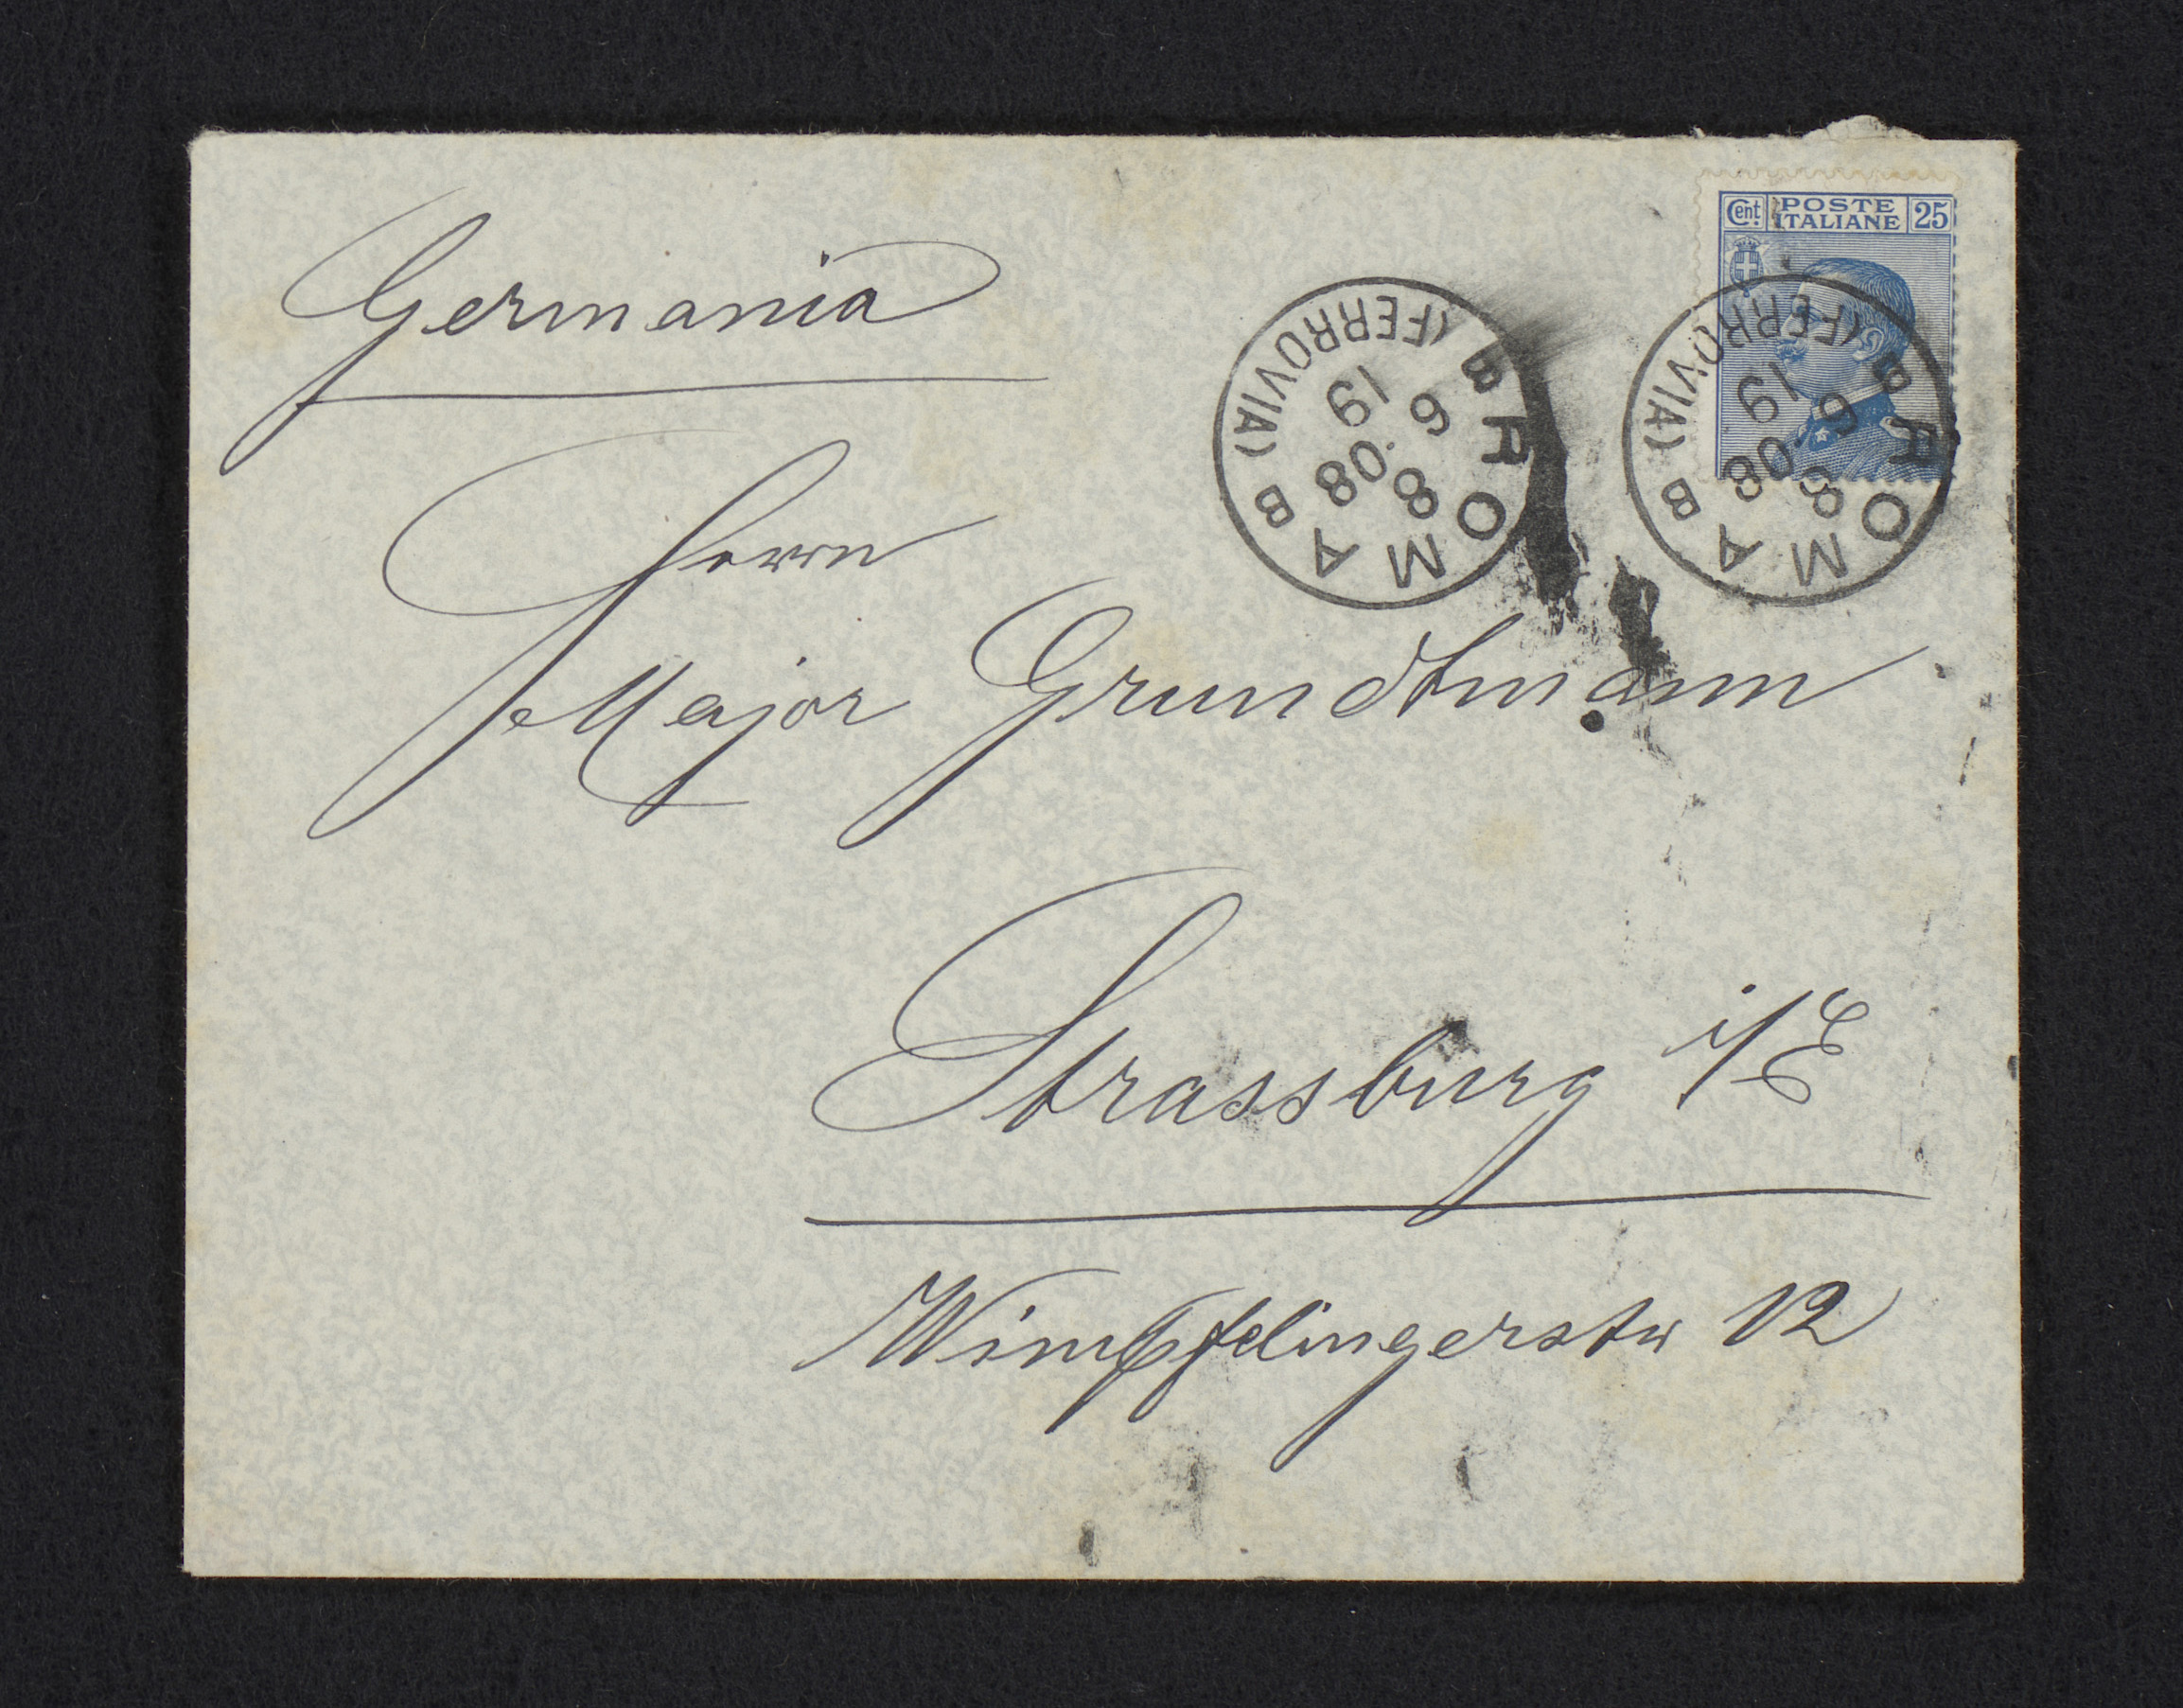 Germania
Cent. POSTE ITALIANE 25
B ROMA B
(FERROVIA)
6 8
19 08
B ROMA B
(FERROVIA)
6 8
19 08
Herrn
Major Grundtmann
Strassburg i/E
Wimpfelingerstr 12